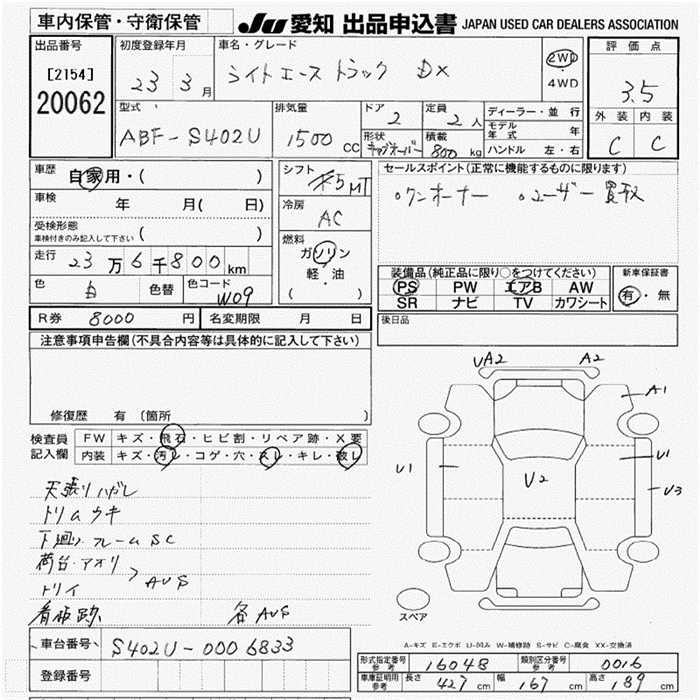 車内保管・守衛保管
JU 愛知 出品申込書 JAPAN USED CAR DEALERS ASSOCIATION
出品番号
[2154]
20062
初度登録年月
23 3月
車名・グレード
ライトエーストラック DX
2WD
・
4WD
評価点
3.5
外装 内装
C C
型式
ABF-S402U
排気量
1500 cc
ドア
2
定員
2 人
形状
キャブオーバー
積載
800 kg
ディーラー・並行
モデル年式 年
ハンドル 左・右
車歴
自家用・( )
車検 年 月( 日)
受検形態
車検付きのみ記入して下さい ( )
走行
23万6千800km
色 白 色替 色コード W09
シフト
5MT
冷房
AC
燃料
ガソリン
軽・油
( )
セールスポイント(正常に機能するものに限ります)
○ワンオーナー ○ユーザー買取
装備品(純正品に限り○をつけてください)
PS PW エアB AW
SR ナビ TV カワシート
新車保証書
有・無
R券 8000 円 名変期限 月 日
後日品
注意事項申告欄(不具合内容等は具体的に記入して下さい)
修復歴 有 (箇所 )
検査員
記入欄
FW キズ・飛石・ヒビ割・リペア跡・X要
内装 キズ・汚レ・コゲ・穴・スレ・キレ・破レ
天張りハガレ
トリムウキ
下廻り・フレームSC
荷台・アオリ
トリイ
AUS
看板跡 各AUS
UA2 A2
A1
U1 U2 U1
U3
スペア
A-キズ E-エクボ U-凹み W-補修跡 S-サビ C-腐食 XX-交換済
車台番号 S402U-0006833
登録番号
形式指定番号 参考 16048 類別区分番号 参考 0016
車庫証明用 参考 長さ 427 cm 幅 167 cm 高さ 189 cm